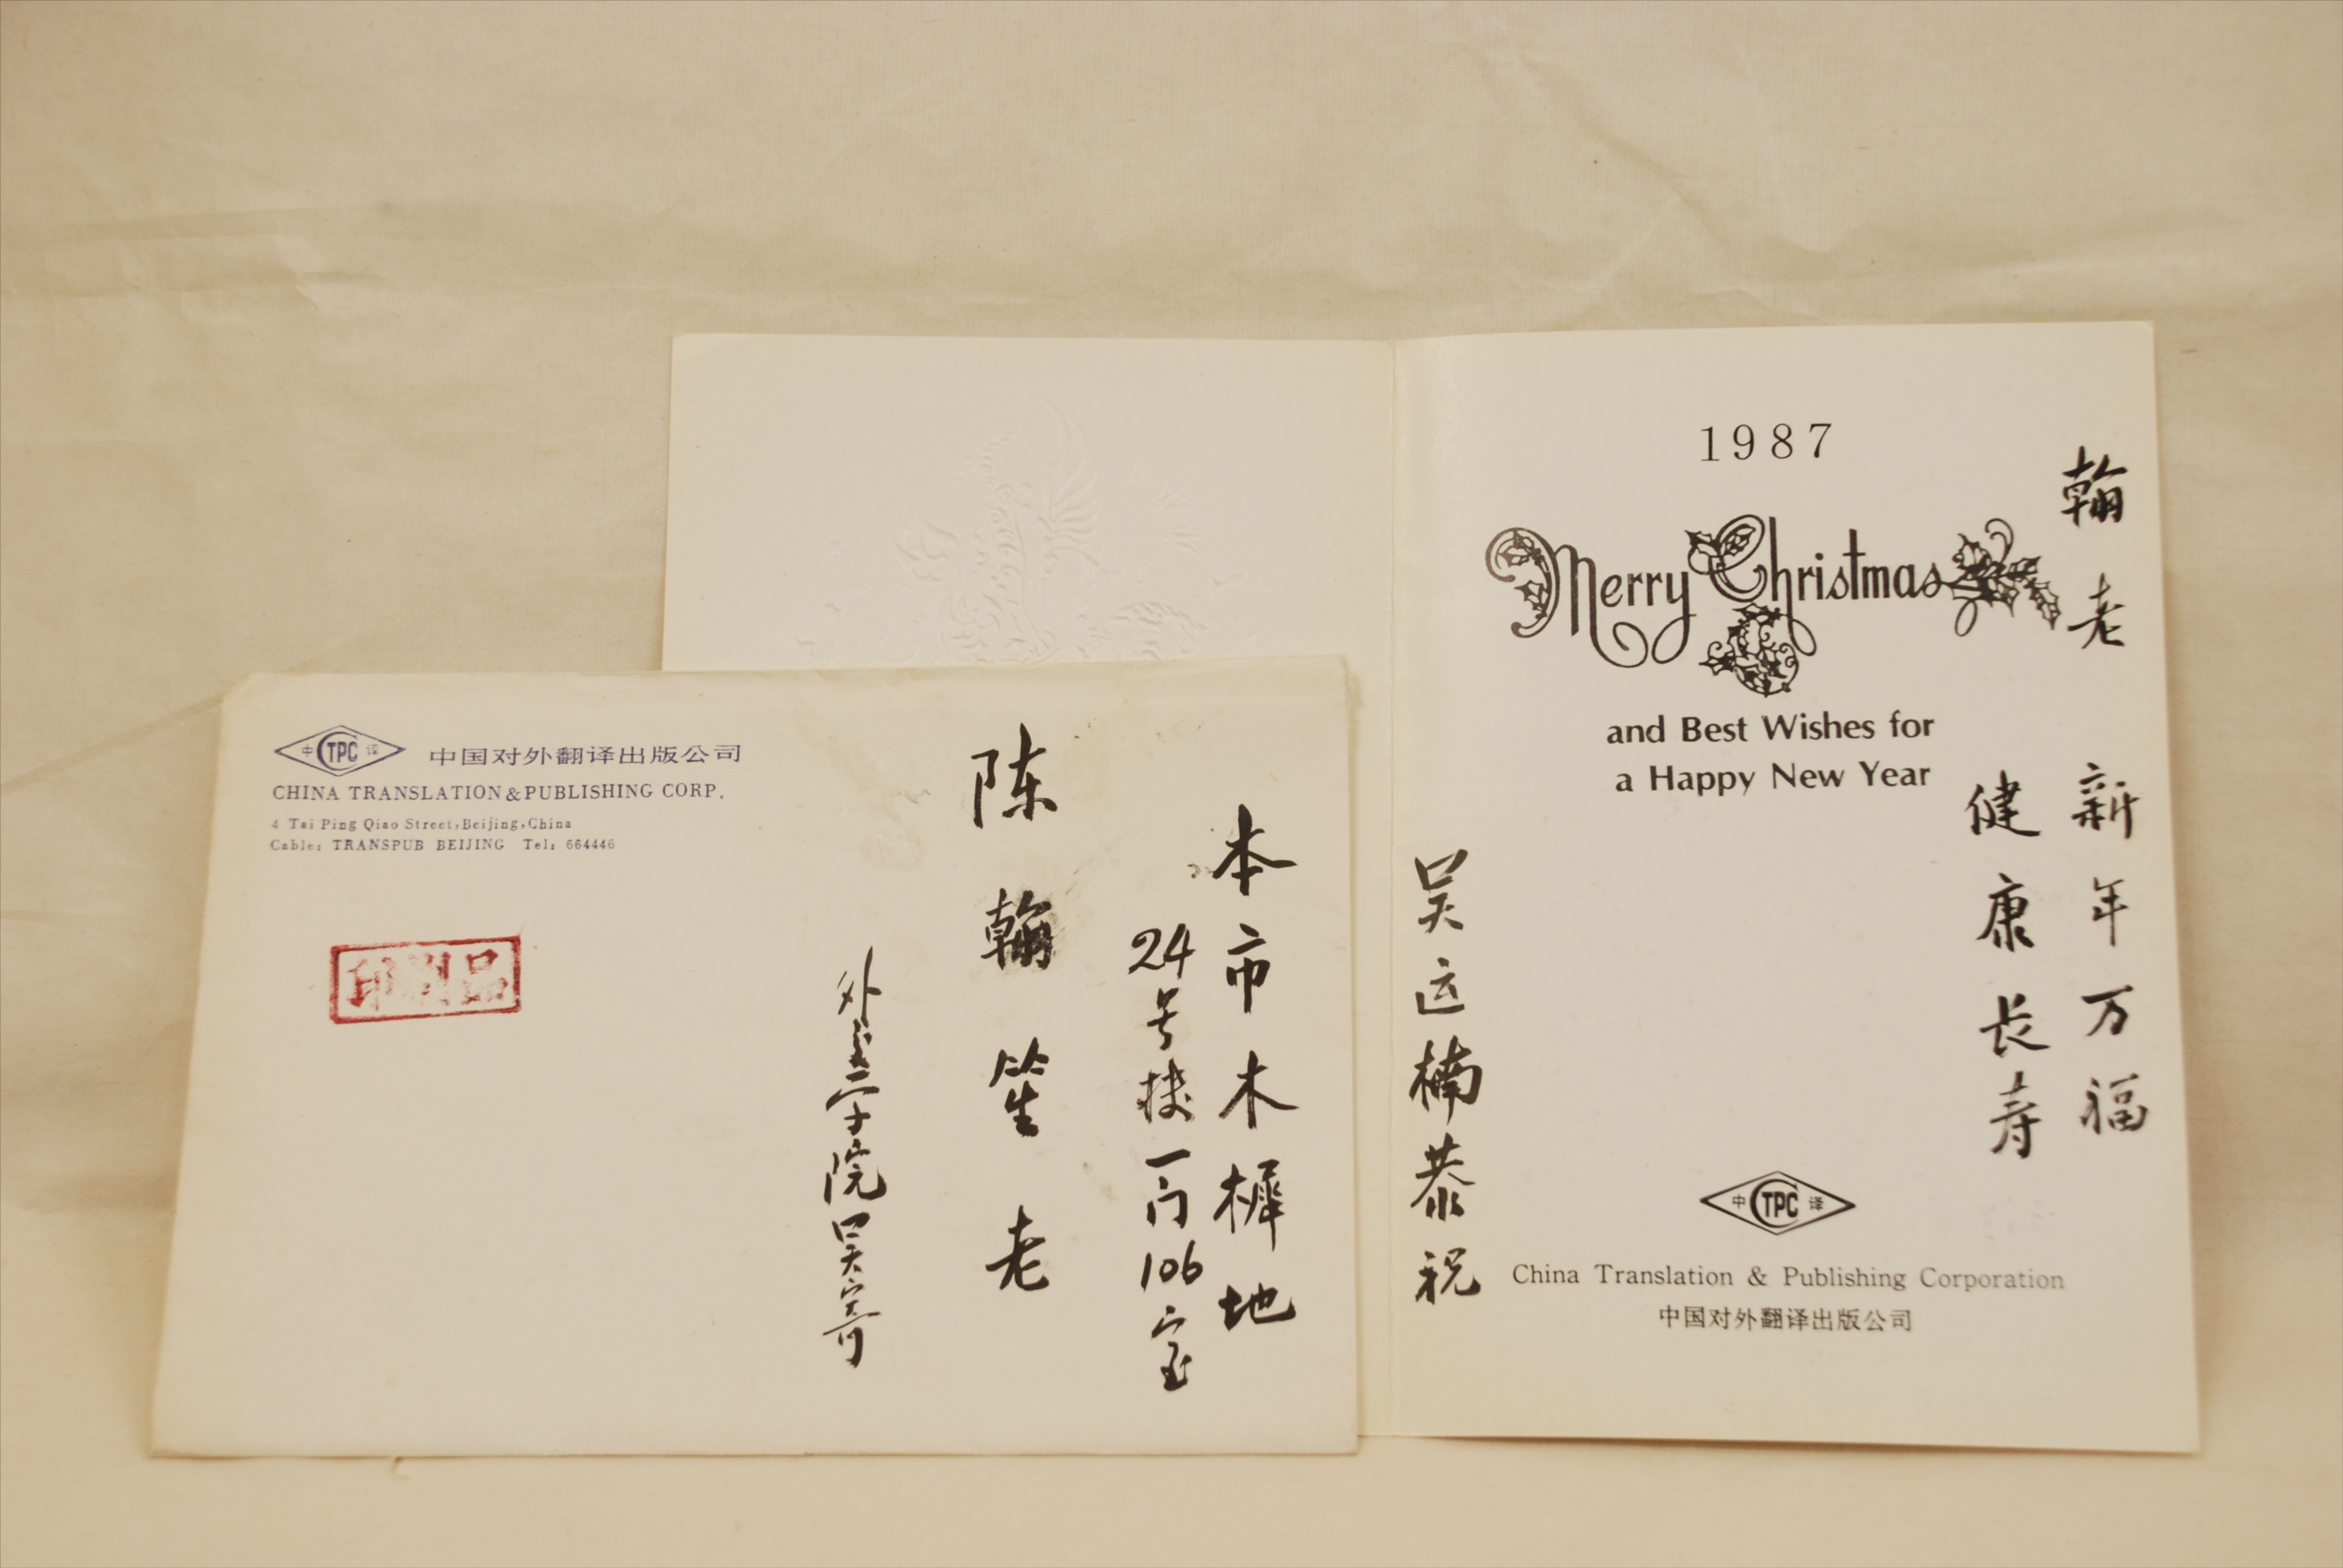 中 CTPC 译
中国对外翻译出版公司
CHINA TRANSLATION & PUBLISHING CORP.
4 Tai Ping Qiao Street, Beijing, China
Cable: TRANSPUB BEIJING Tel: 664446
印刷品
本市木樨地
24号楼一门106室
陈翰笙老
外交学院吴寄
1987
Merry Christmas
and Best Wishes for
a Happy New Year
翰老
新年万福
健康长寿
吴运楠恭祝
中 CTPC 译
China Translation & Publishing Corporation
中国对外翻译出版公司